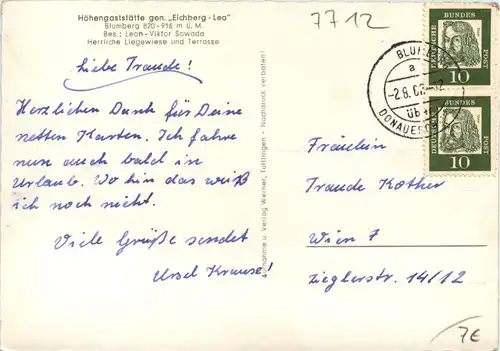 Höhengaststätte gen. „Eichberg-Leo"
Blumberg 820-916 m ü. M.
Bes.: Leon-Viktor Sawada
Herrliche Liegewiese und Terrasse
7712
Liebe Traude!
Herzlichen Dank für Deine
netten Karten. Ich fahre
nun auch bald in
Urlaub. Wo hin das weiß
ich noch nicht.
Viele Grüße sendet
Ursel Krause!
Aufnahme u. Verlag Werner, Tuttlingen - Nachdruck verboten!
a
DEUTSCHE
BUNDES
POST
10
DEUTSCHE
BUNDES
POST
10
Fräulein
Traude Kother
Wien 7
Zieglerstr. 14/12
7€